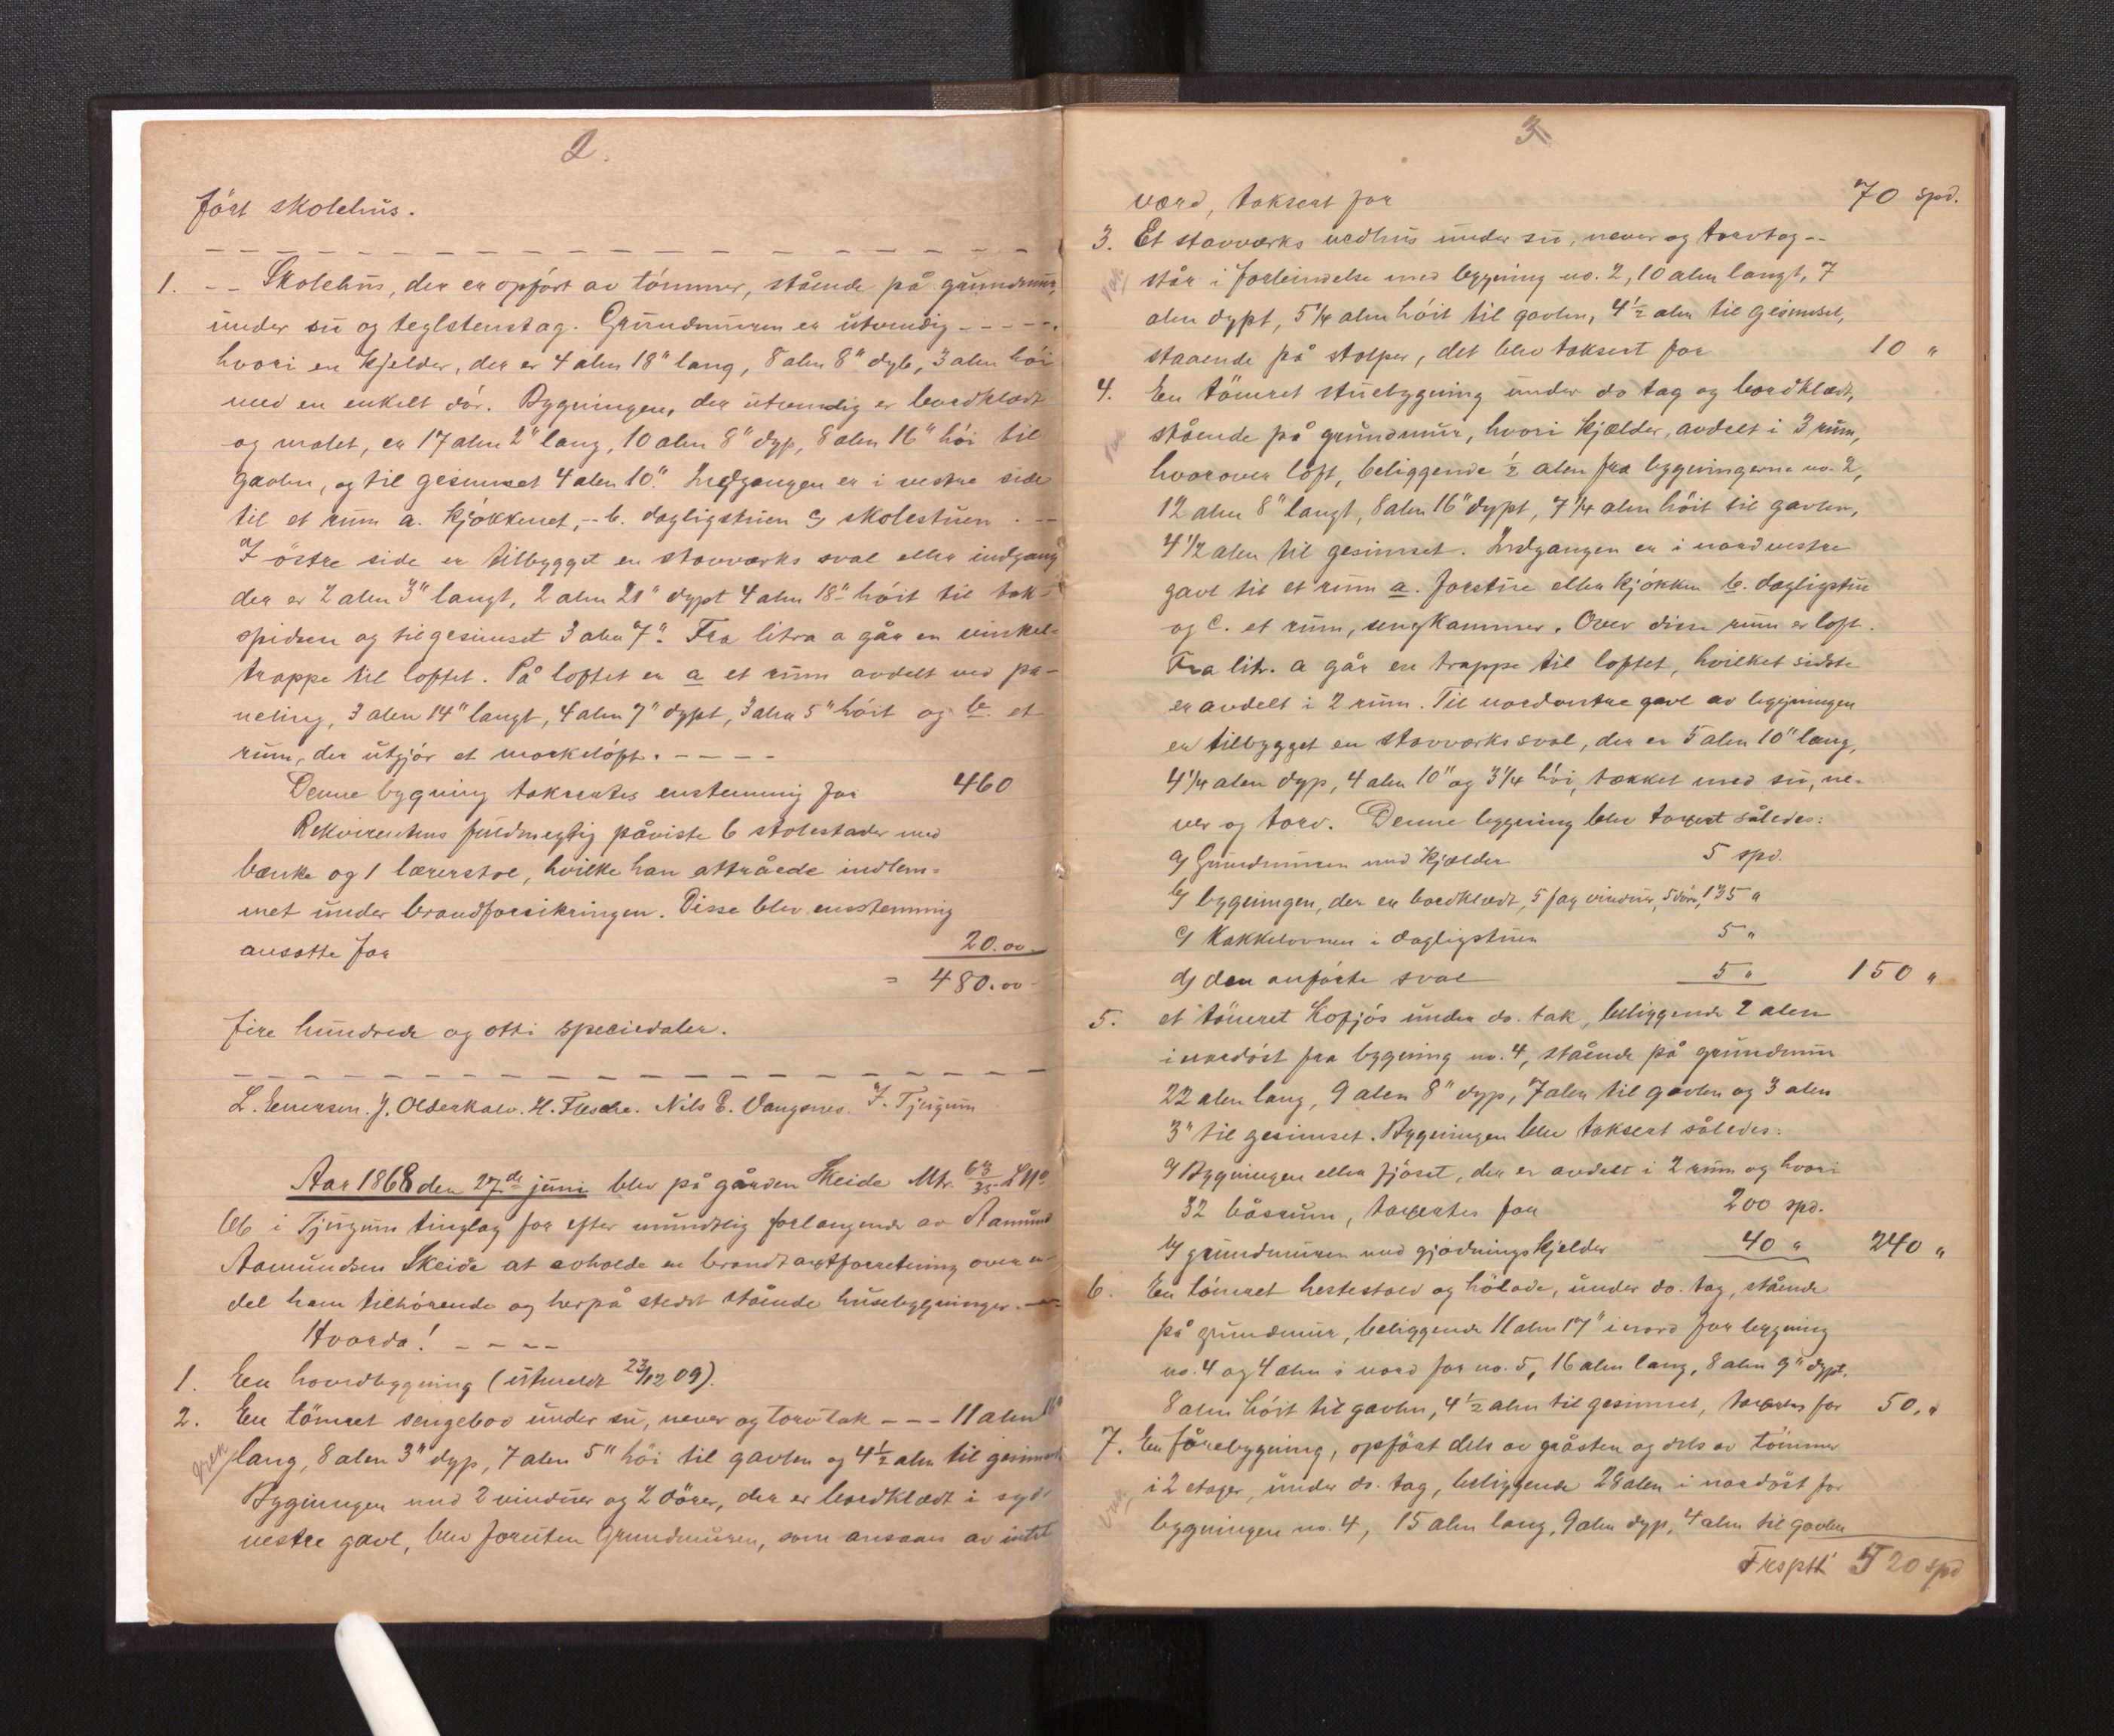 2.
ført skolehus.
1. -- Skolehus, der er opført av tömmer, stående på grundmur,
under su og teglstenstag. Grundmuren er utvendig -----.
hvori en kjelder, der er 4 alen 18" lang, 8 alen 8" dyb, 3 alen høi
med en enkelt dör. Bygningen, der utvendig er bordklædt
og malet, er 17 alen 2" lang, 10 alen 8" dyp, 8 alen 16" höi til
gavlen, og til gesimset 4 alen 10". Indgangen er i vestre side
til et rum a. kjökkenet, -- b. dagligstuen c) skolestuen . --
I östre side er tilbygget en stavværks sval eller indgang
der er 2 alen 3" langt, 2 alen 21" dypt 4 alen 18" höit til tak-
spidsen og til gesimset 3 alen 7". Fra litra a går en vinkel-
trappe til loftet. På loftet er a et rum avdelt ved pa-
neling, 3 alen 14" langt, 4 alen 7" dypt, 3 alen 5" höit og b. et
rum, der utgjör et mörkelöft. ----
Denne bygning taksertes enstemmig for 460
Rekvirentens fuldmegtig påviste 6 stolestader med
bænke og 1 lærerstol, hvilke han attråede indlem-
met under brandforsikringen. Disse blev enstemmig
ansatte for 20.00
= 480.00
fire hundrede og otti speciedaler.
L. Enersen. J. Olderkalv. H. Flesche. Nils E. Vangsnes. I. Tjugum
Aar 1868 den 27de juni blev på gården Skeide Mtr. 63/35 LNo
6b i Tjugum tinglag for efter mundtlig forlangende av Aamund
Aamundsen Skeide at avholde en brandtaxtforretning over en
del ham tilhörende og herpå stedet stående husebygninger. --
Hvorda! ----
1. En hovedbygning (utmeldt 23/12 09).
2. En tömret sengebod under su, never og torvtak --- 11 alen 18"
lang, 8 alen 3" dyp, 7 alen 5" höi til gavlen og 4 1/2 alen til gesimset
Bygningen med 2 vinduer og 2 dörer, der er bordklædt i syd
vestre gavl, blev foruten Grundmuren, som ansaaes av intet
3
værd, taksert for 70 spd.
3. Et stavværks vedhus under su, never og torvtag --
står i forbindelse med bygning no. 2, 10 alen langt, 7
alen dypt, 5 1/4 alen höit til gavlen, 4 1/2 alen til gesimset,
staaende på stolper, det blev taksert for 10 "
4. En tömret stuebygning under do tag og bordklædt,
stående på grundmur, hvori kjælder, avdelt i 3 rum,
hvorover loft, beliggende 1/2 alen fra bygningerne no. 2,
12 alen 8" langt, 8 alen 16" dypt, 7 1/4 alen höit til gavlen,
4 1/2 alen til gesimset. Indgangen er i nordvestre
gavl til et rum a. forstue eller kjökken b. dagligstue
og c. et rum, sengkammer. Over disse rum er loft.
Fra litr. a går en trappe til loftet, hvilket sidste
er avdelt i 2 rum. Til nordvestre gavl av bygningen
er tilbygget en stavværks sval, der er 5 alen 10" lang,
4 1/4 alen dyp, 4 alen 10" og 3 1/4 höi, tækket med su, ne-
ver og torv. Denne bygning blev taxert således:
a) Grundmuren med kjælder 5 spd.
b) bygningen, der er bordklædt, 5 fag vinduer, 5 dörer, 135 "
c) Kakkelovnen i dagligstuen 5 "
d) den anförte sval 5 " 150 "
5. et tömret Kofjös under do. tak, beliggende 2 alen
i nordöst fra bygning no. 4, stående på grundmur
22 alen lang, 9 alen 8" dyp, 7 alen til gavlen og 3 alen
3" til gesimset. Bygningen blev taksert således:
a) Bygningen eller fjöset, der er avdelt i 2 rum og hvori
32 båsrum, taxertes for 200 spd.
b) grundmuren med gjödningskjelder 40 " 240 "
6. En tömret hestestald og hölade, under do. tag, stående
på grundmur, beliggende 11 alen 17" i nord for bygning
no. 4 og 4 alen i nord for no. 5, 16 alen lang, 8 alen 9" dypt,
8 alen höit til gavlen, 4 1/2 alen til gesimset, taxertes for 50. "
7. En fårebygning, opföst dels av gråsten og dels av tömmer
i 2 etager, under do. tag, beliggende 28 alen i nordöst for
bygningen no. 4, 15 alen lang, 9 alen dyp, 4 alen til gavlen
Trsptt 520 spd